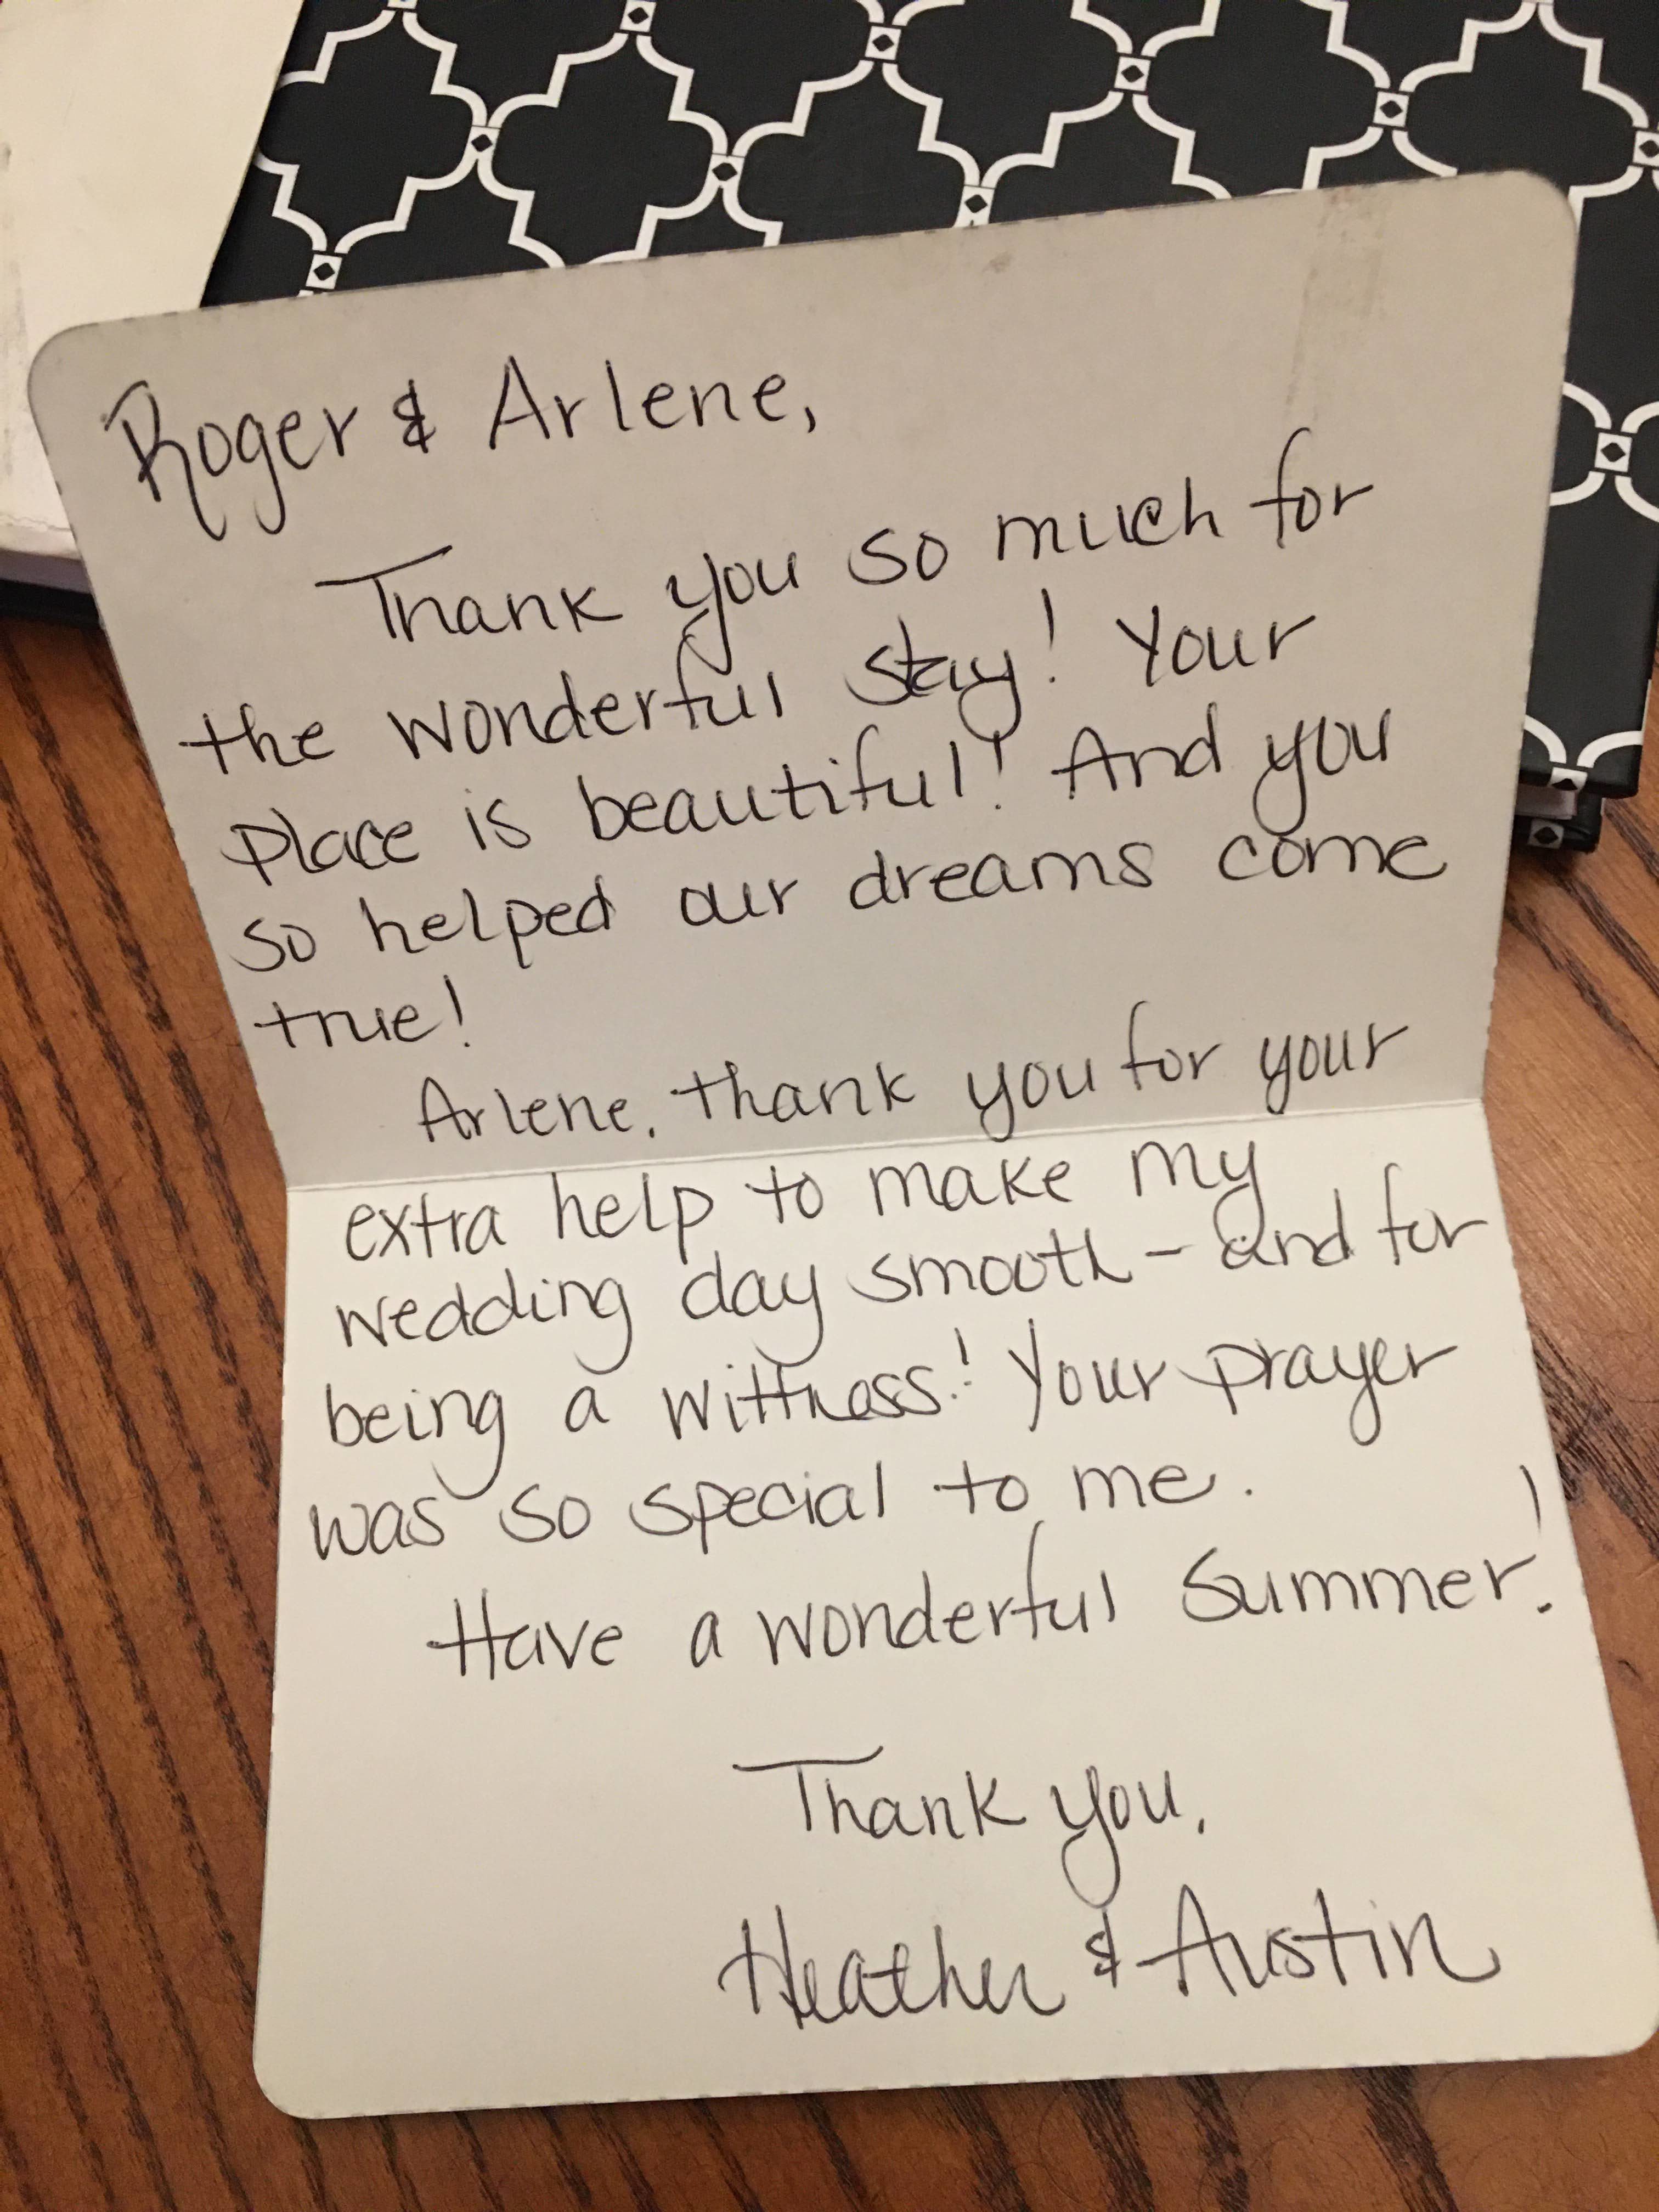 Roger & Arlene,
Thank you so much for
the wonderful stay! Your
place is beautiful! And you
so helped our dreams come
true!
Arlene, thank you for your
extra help to make my
wedding day smooth - and for
being a wittness! Your prayer
was so special to me.
Have a wonderful Summer!
Thank you,
Heather & Austin